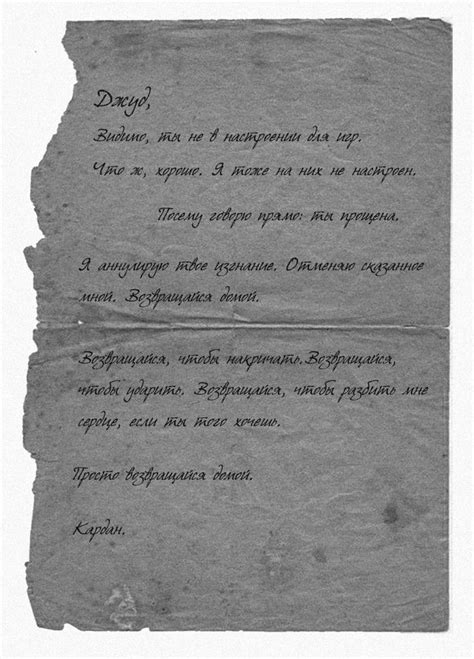 Джуд,
Видимо, ты не в настроении для игр.
Что ж, хорошо. Я тоже на них не настроен.
Посему говорю прямо: ты прощена.
Я аннулирую твое изгнание. Отменяю сказанное
мной. Возвращайся домой.
Возвращайся, чтобы накричать.Возвращайся,
чтобы ударить. Возвращайся, чтобы разбить мне
сердце, если ты того хочешь.
Просто возвращайся домой.
Кардан.